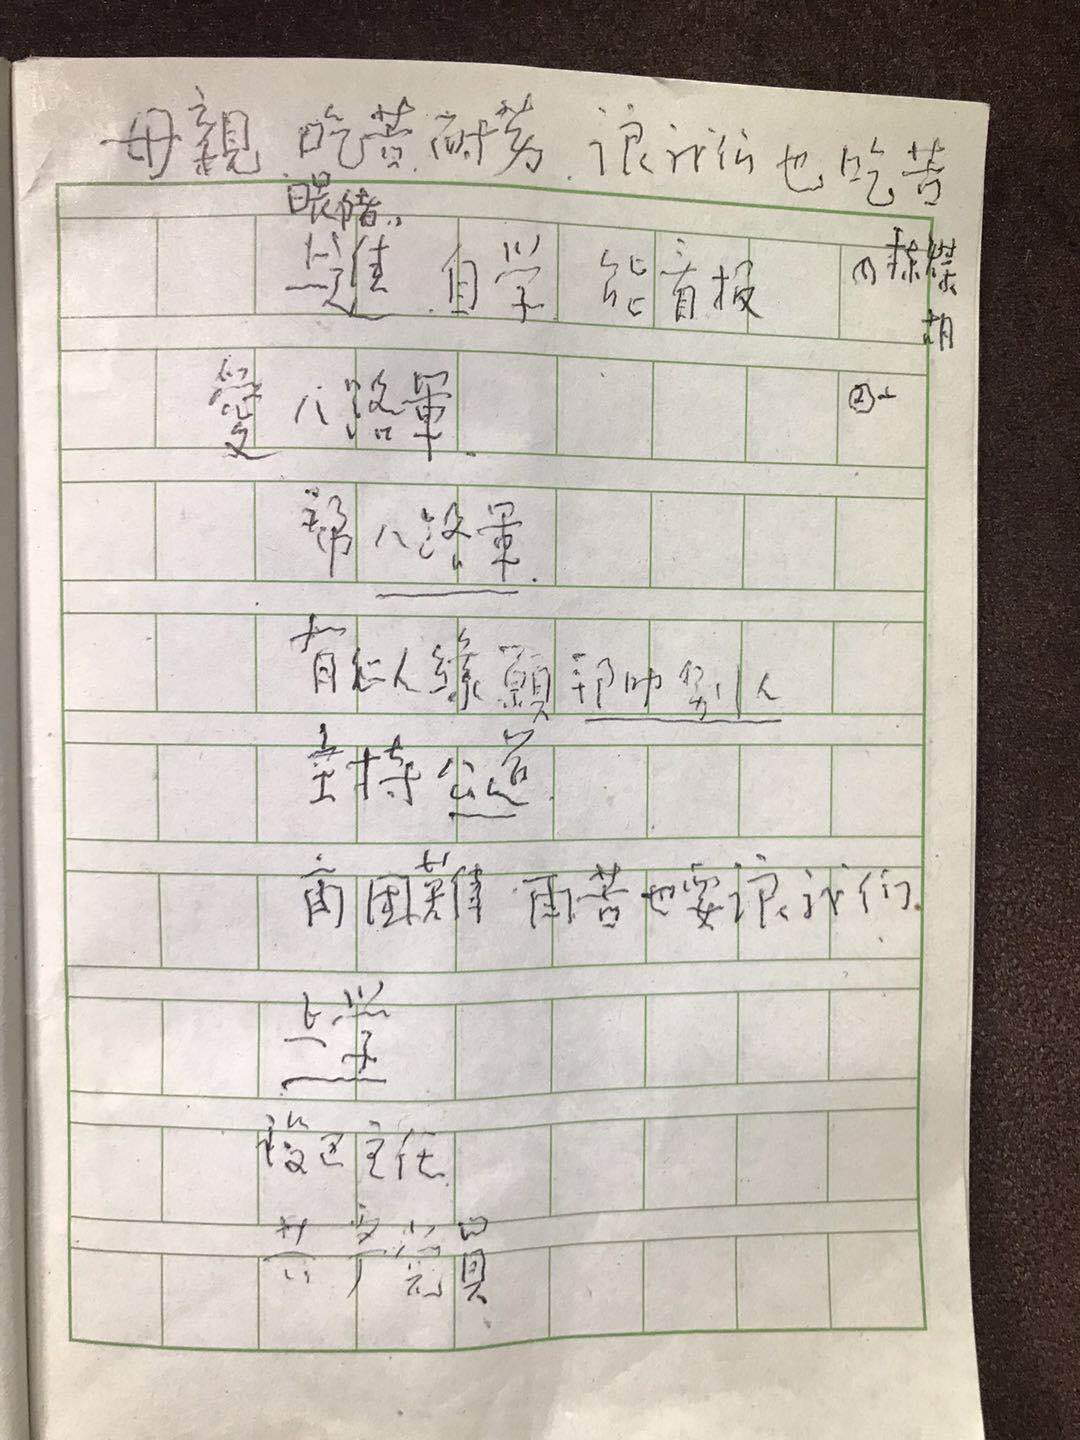 母親 吃苦耐劳.讓我们也吃苦
眼睛..
上進 自学 能看报
①
胡
愛八路軍.
②
帮八路軍.
有仁人緣 願帮助别人
主持公道.
再困難 再苦也要讓我们.
上学
設 主任
共產党員